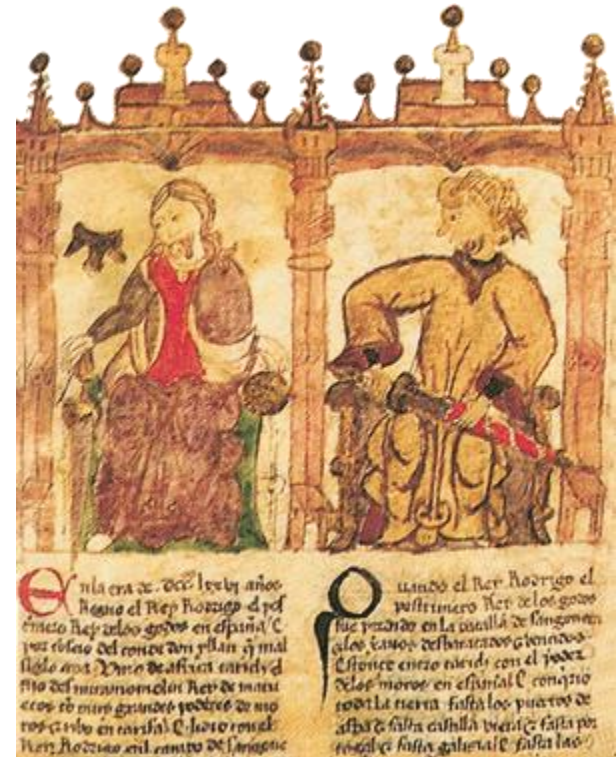 En la era de . Dcc̄ . lxxvj años
Regno el Rey Rodrigo el post
rimero Rey de los godos en españa / E
por conseio del conde don yllan q̄ mal
siglo aya . Vino de africa taridⸯ
fijo del miramomolin Rey de marru
ecos cō muy grandes poderes de mo
ros & ribo en tarifa / E lidio con el
Rey Rodrigo en l campo de sangone
Quando el Rey Rodrigo el
postrimero Rey de los godos
fue perdido en la batalla de sangone
& los xanos desbaratados & vencidos
Estonce entro tarid con el poder
de los moros en españa / E conqrio
toda la tierra fasta los puertos de
aspa & fasta castilla vieja & fasta por
togal & fasta galizia / E fasta las